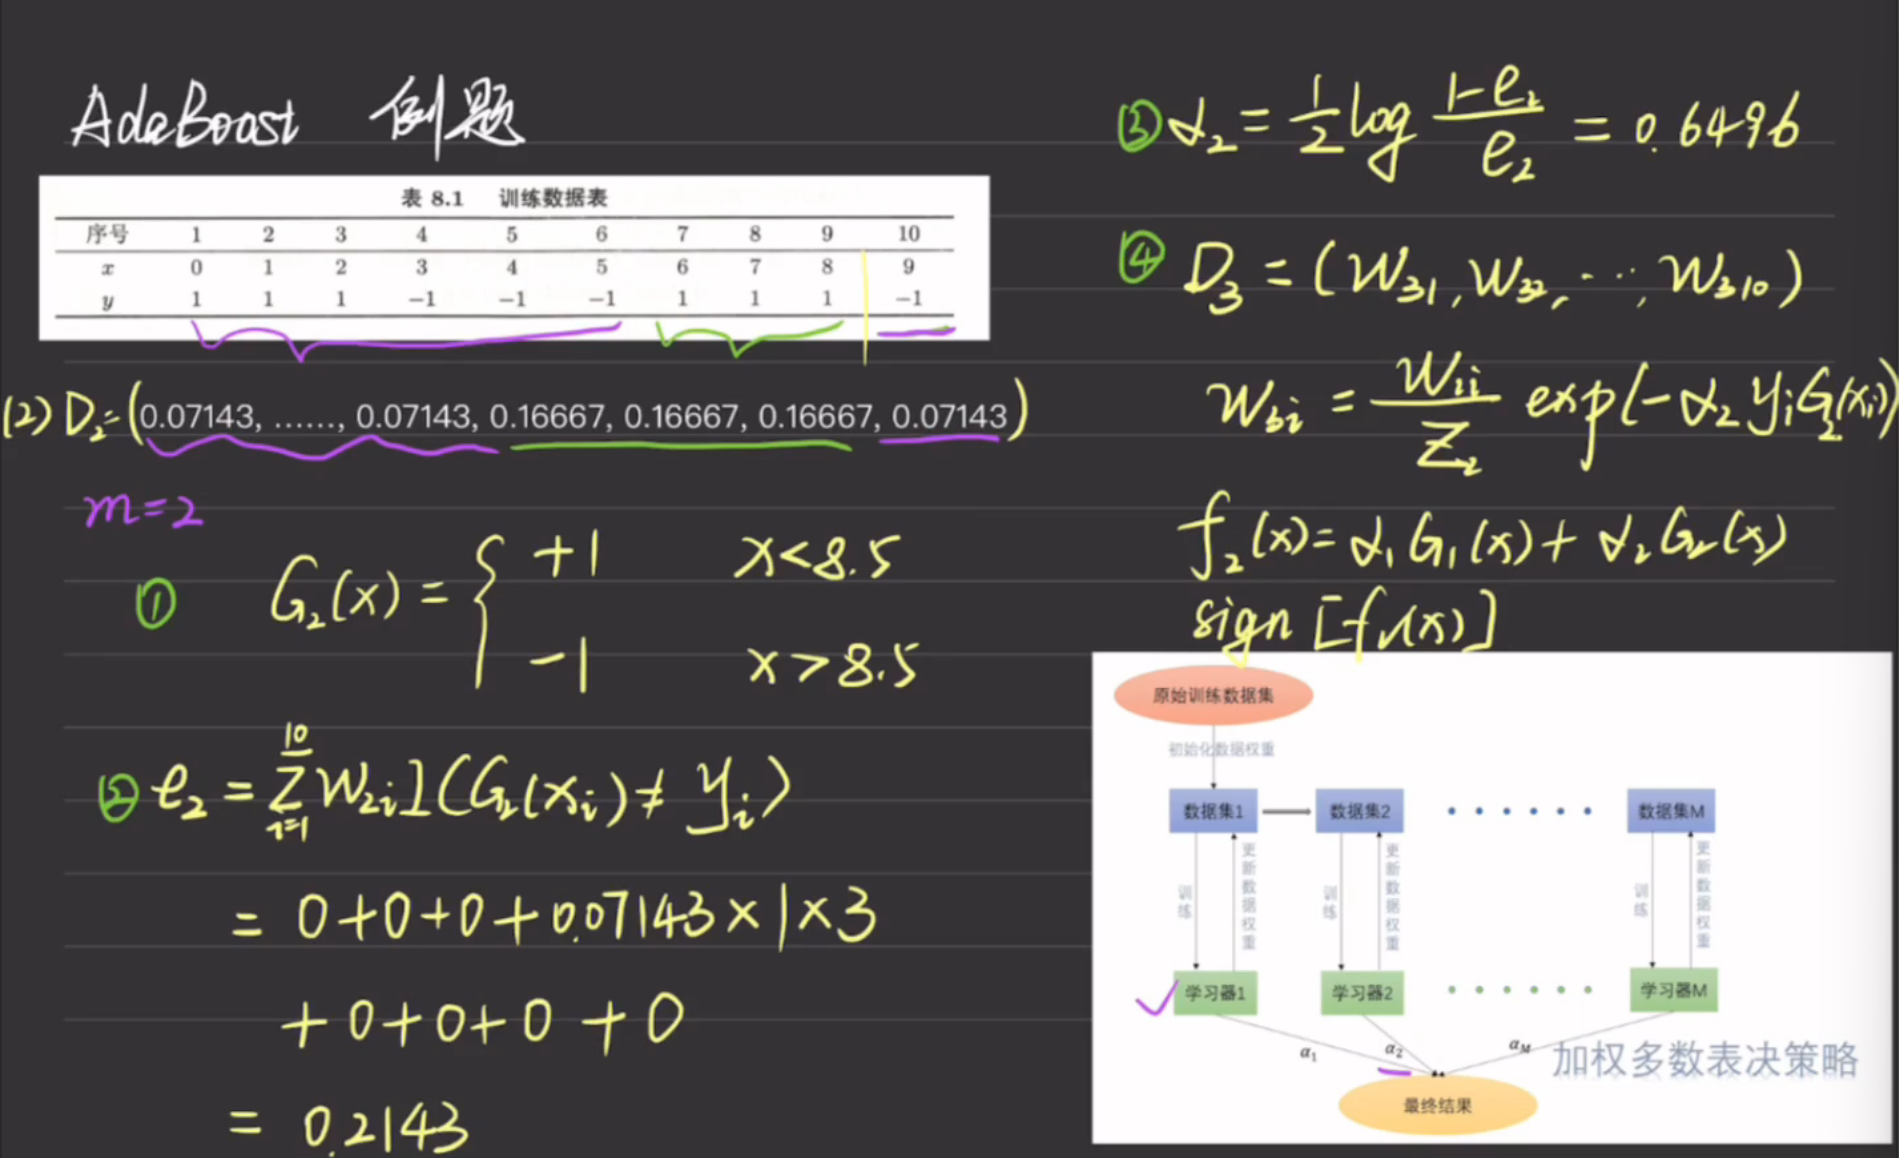 AdaBoost 例题
表 8.1 训练数据表
序号 1 2 3 4 5 6 7 8 9 10
x 0 1 2 3 4 5 6 7 8 9
y 1 1 1 −1 −1 −1 1 1 1 −1
(2) D₂=(0.07143, ……, 0.07143, 0.16667, 0.16667, 0.16667, 0.07143)
m=2
① G₂(x) = { +1 x<8.5
−1 x>8.5
② e₂ = Σᵢ₌₁¹⁰ W₂ᵢ I(G₂(xᵢ) ≠ yᵢ)
= 0+0+0+0.07143×1×3
+0+0+0+0
= 0.2143
③ α₂ = 1/2 log (1−e₂)/e₂ = 0.6496
④ D₃ = (W₃₁, W₃₂, ···, W₃₁₀)
W₃ᵢ = W₂ᵢ/Z₂ exp(−α₂yᵢG₂(xᵢ))
f₂(x) = α₁G₁(x) + α₂G₂(x)
sign[f₂(x)]
原始训练数据集
初始化数据权重
数据集1 数据集2 数据集M
训练 更新数据权重 训练 更新数据权重 训练 更新数据权重
学习器1 学习器2 学习器M
α₁ α₂ αM
加权多数表决策略
最终结果